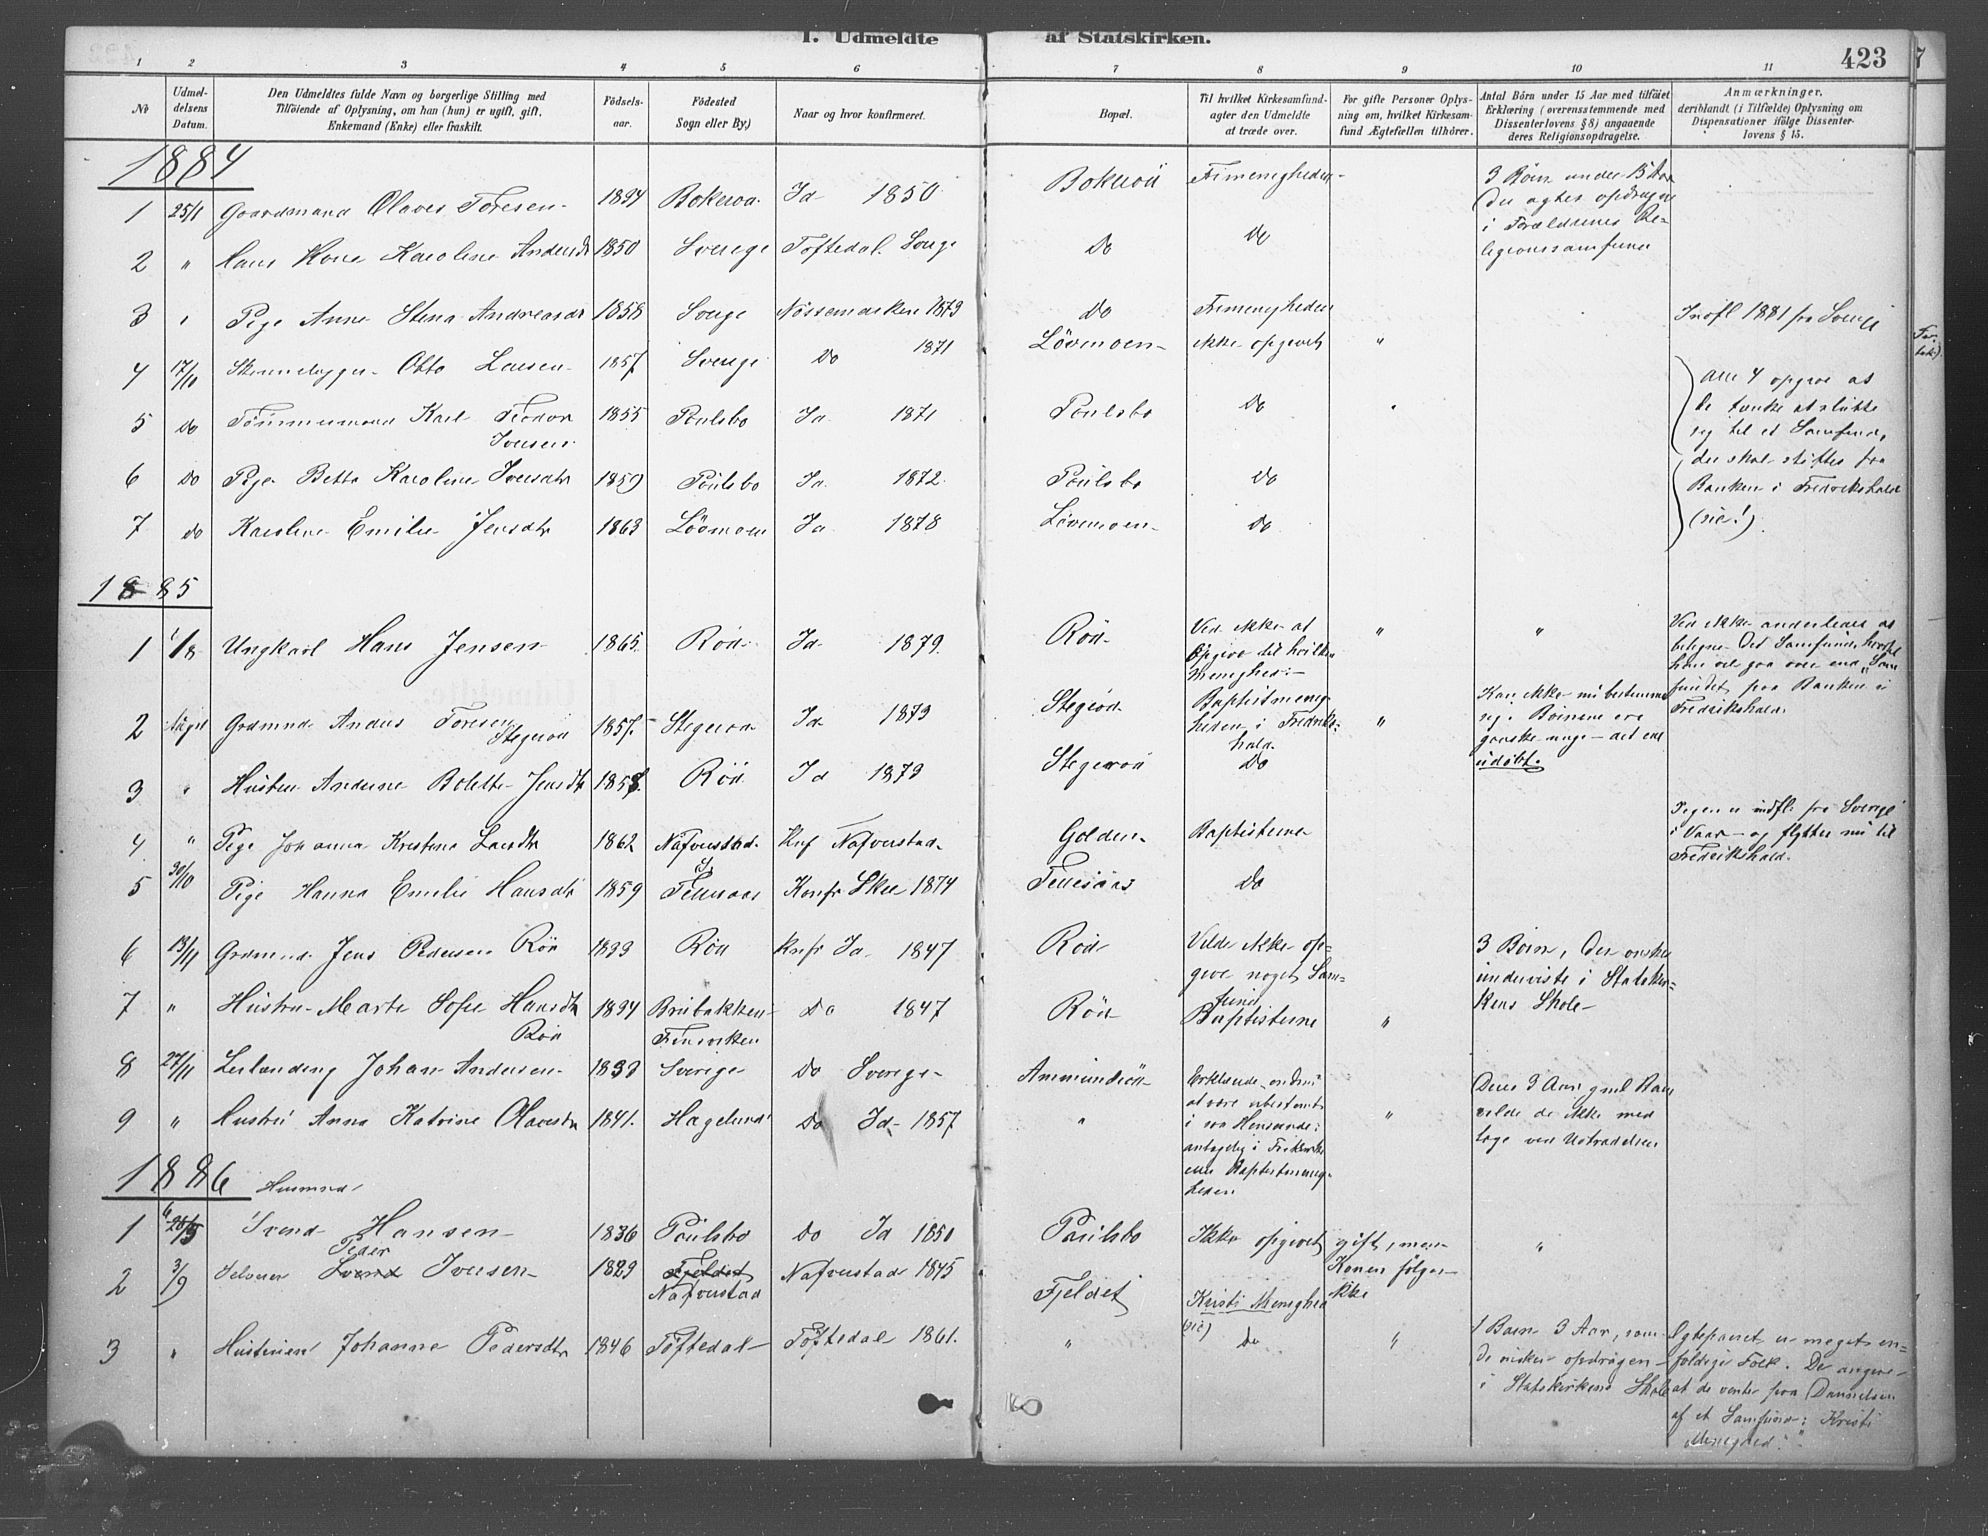 I. Udmeldte af Statskirken.
423
1 2 3 4 5 6 7 8 9 10 11
No
Udmeldelsens Datum.
Den Udmeldtes fulde Navn og borgerlige Stilling med
Tilföiende af Oplysning, om han (hun) er ugift, gift,
Enkemand (Enke) eller fraskilt.
Födselsaar.
Födested
Sogn eller By.)
Naar og hvor konfirmeret.
Bopæl.
Til hvilket Kirkesamfund
agter den Udmeldte
at træde over.
For gifte Personer Oplysning om, hvilket Kirkesamfund Ægtefællen tilhörer.
Antal Börn under 15 Aar med tilföiet
Erklæring (overensstemmende med
Dissenterlovens § 8) angaaende
deres Religionsopdragelse.
Anmærkninger,
deriblandt (i Tilfælde) Oplysning om
Dispensationer ifölge Dissenterlovens § 15.
1884
1 25/1 Gaardmand Olaves Toresen 1834 Bokerød Id 1850 Bokerød Frimenigheden
3 Börn under 15 Aar
Der agtes opdragne
i Forældrenes Religionssamfund
2 " Hans Kone Karoline Andersdtr 1850 Sverige Töftedal Do Do
3 " Pige Anne Stina Andreasdtr 1858 Sverige Nössemarken 1873 Do Frimenigheden
Indfl 1881 fra Sverige
4 17/10 Otto Larsen 1857 Sverige Do 1871 Lövmoen ikke opgivet "
5 Do Tömmermand Karl Teodor
Iversen 1855 Poulsbo Id 1871 Poulsbo Do
6 Do Pige Betta Karoline Iversdtr 1859 Poulsbo Id 1872 Poulsbo Do
7 Do Karoline Emilie Jensdtr 1863 Lövmoen Id 1878 Lövmoen Do
Alle 4 opgive at
de tænke at slutte
sig til et Samfund,
der skal stiftes fra
Banken i Fredrikshald
(sic!).
1885
1 1/8 Ungkarl Hans Jensen 1865 Röd Id 1879 Röd
Ved ikke at
opgive til hvilken
Menighed
" "
Ved ikke anderledes at
betegne Det Samfund, hvortil
han vil gaa over end "Samfundet paa Banken" i
Fredrikshald.
2 Grdmnd Anders Toresen
Stegeröd 1857 Stegeröd Id 1873 Stegeröd
Baptistmenigheden i Fredrikshald.
"
Kan ikke nu bestemme
sig. Börnene ere
ganske unge - det ene
udöbt.
3 " Hustru Andrine Bolette Jensdtr 1858 Röd Id 1873 Stegeröd Do
4 " Pige Johanna Kristina Larsdtr 1862 Nafverstad Knf Nafverstad Golden Baptisterne
Pigen er indfl. fra Sverige
i Vaar og flytter nu til
Fredrikshald.
5 30/10 Pige Hanna Emilie Hansdtr 1859 Konf Skee 1874 Do
6 13/11 Grdmnd. Jens Pedersen Röd 1833 Röd Knf Id 1847 Röd
Vilde ikke opgive noget Samfund
3 Börn, Der önskes
underviste i Statskirkens Skole
7 " Hustru Marte Sofie Hansdtr
Röd 1834 Brubakken
Do 1847 Röd Baptisterne "
8 27/11 Leilænding Johan Andersen 1833 Sverige Do Sverige Ammundröd
Erklærede endnu
at være ubestemt
i saa Henseende;
antagelig i Frikirken
eller Baptistmenigheden
Deres 3 Aar gml Barn
vilde de ikke med
tage ved Udtrædelsen
9 " Hustru Anna Katrine Olavesdtr 1841 Hagelund Do Id 1857 " "
1886
1 Husmnd Svend Hansen 1836 Poulsbo Do Id 1850 Poulsbo Ikke opgivet
gift, men
Konen fölger
ikke
"
2 3/9 Selveier Svend Peder Iversen 1829 Fjeldet Nafverstad Nafverstad 1845 Fjeldet
Kristi Menighed
(sic)
3 " Hustruen Johanne Pedersdtr 1846 Töftedal Töftedal 1861 " Do "
1 Barn 3 Aar, som
de önsker opdragen
i Statskirkens Skole
Ægteparret er meget enfoldige Folk. De angive
at de venter paa Danielsen
af et Samfund: "Kristi
Menighed."